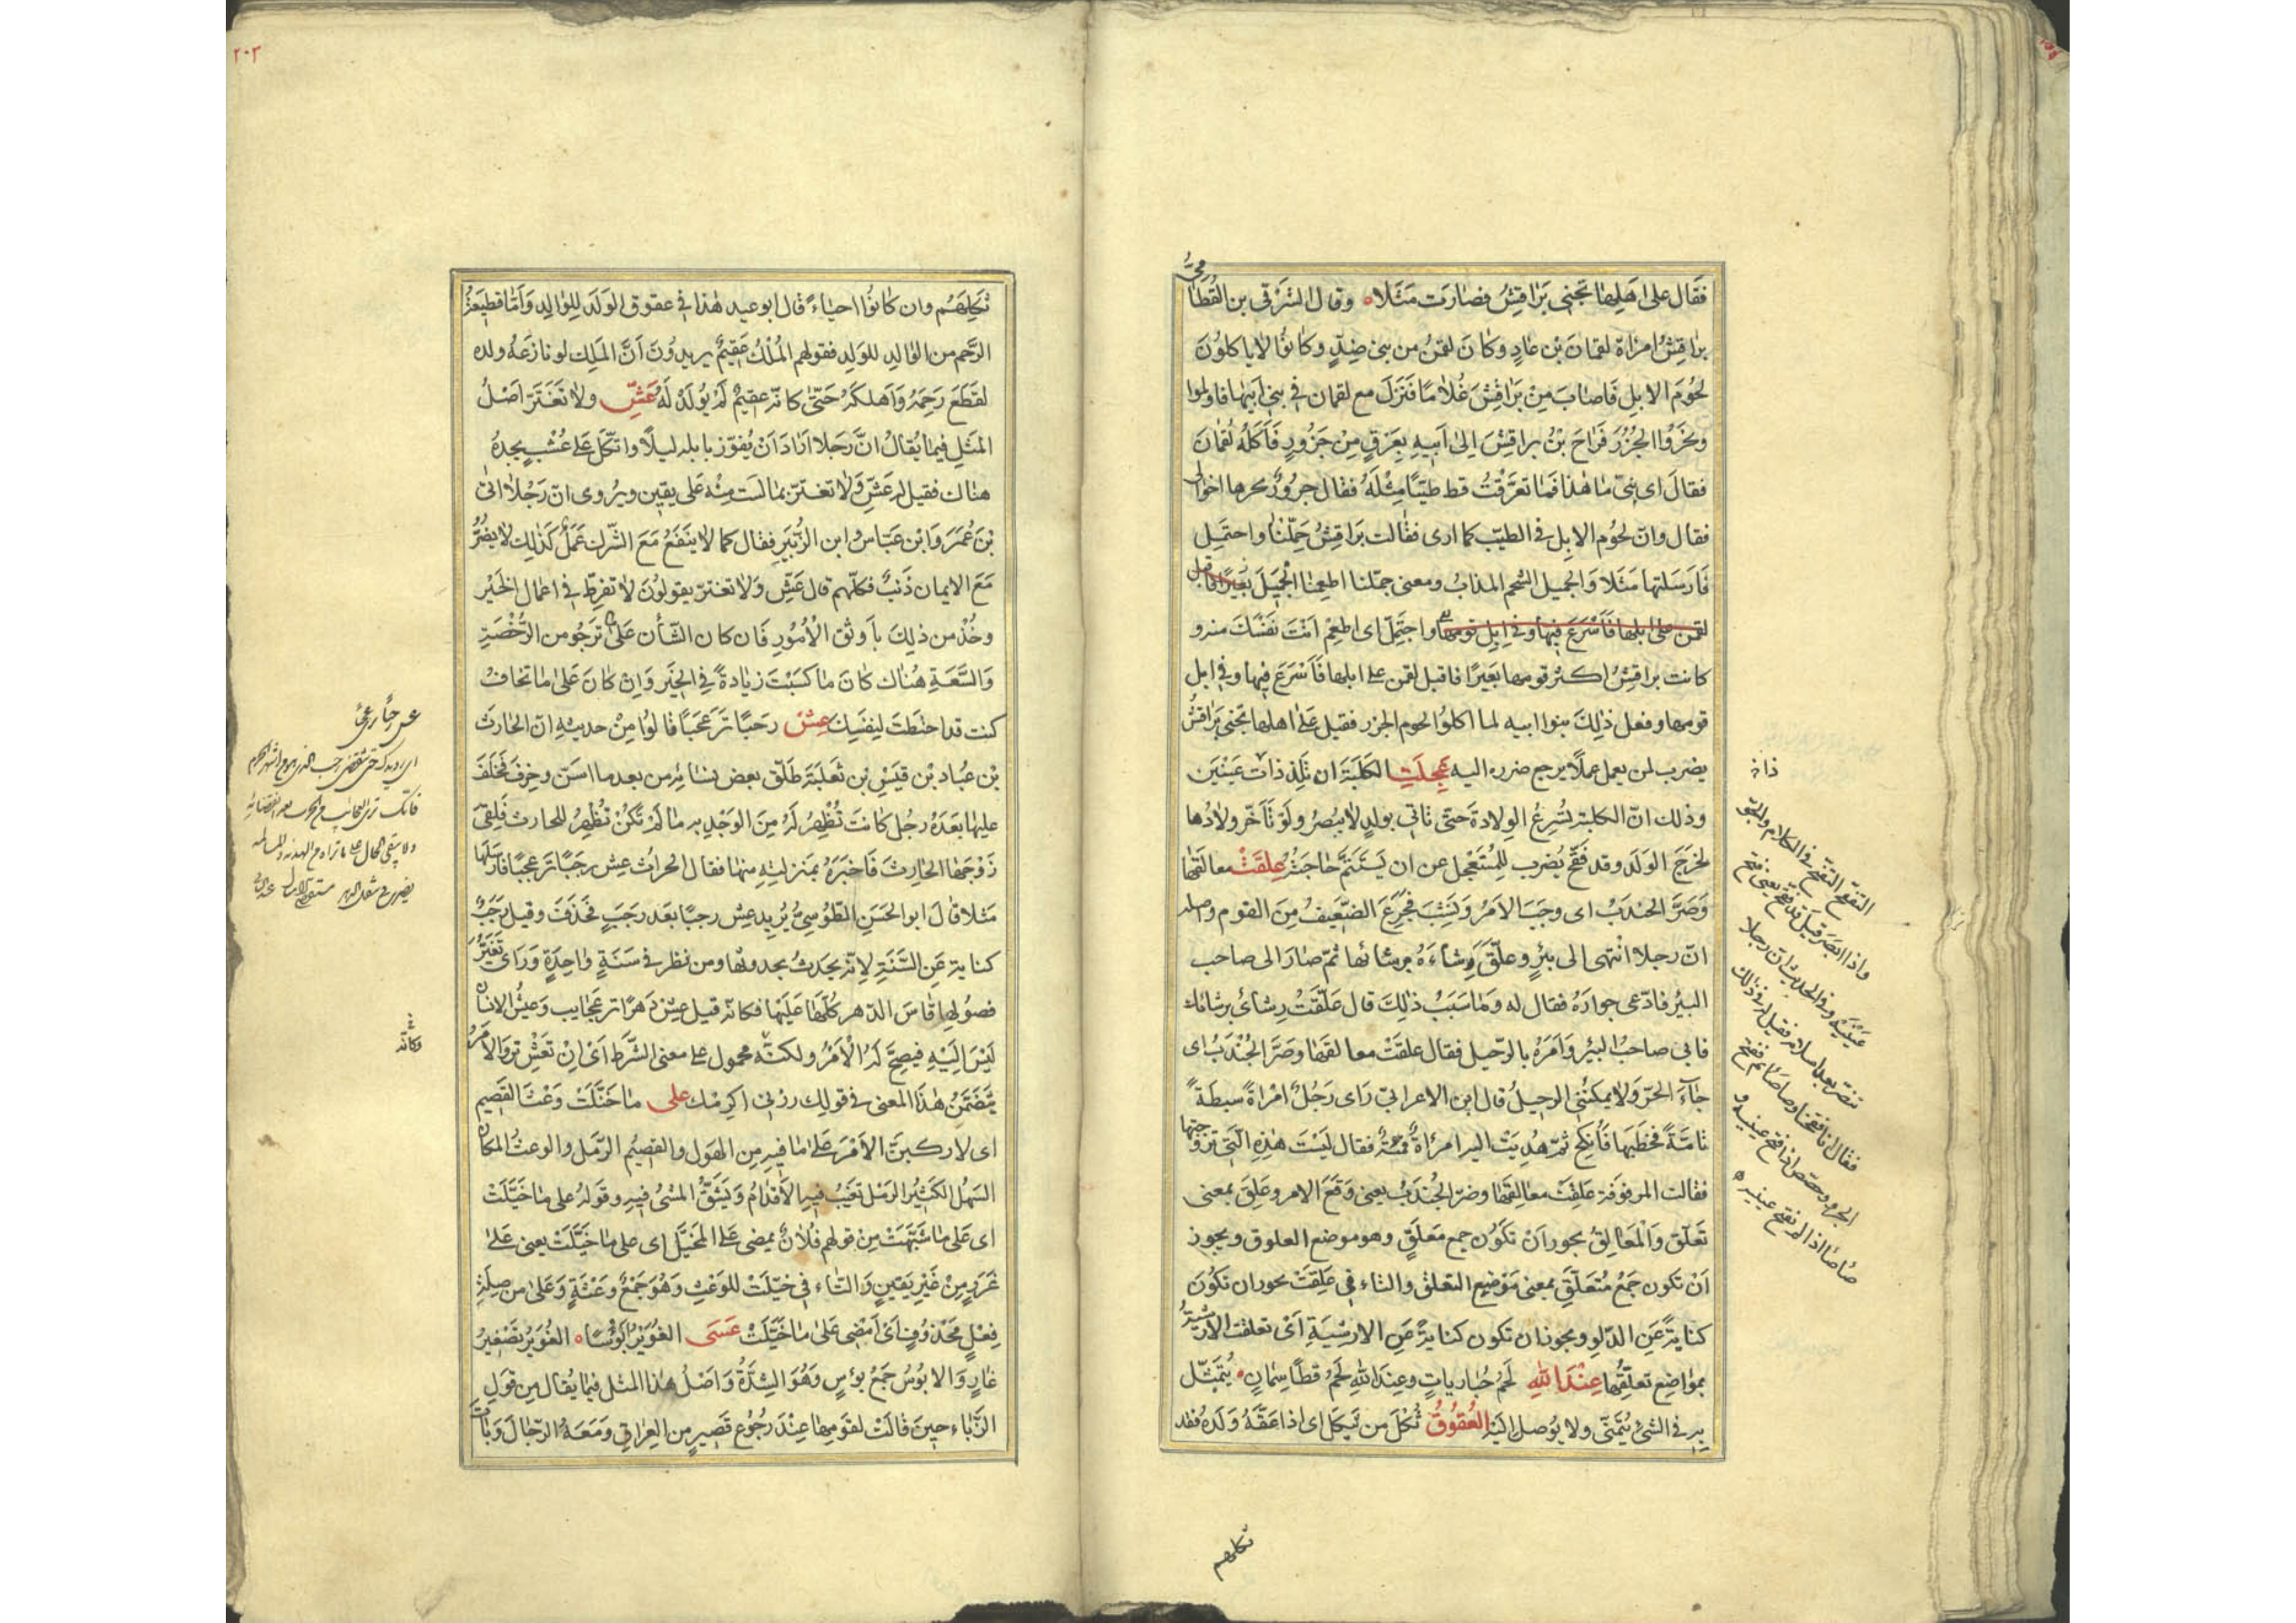 فقال على اهلها تجنى براقش فصارت مثلا وقال الشرقى بن القطامى
براقش امراة لقمان بن عاد وكان لقمن من بنى ضد وكانوا لا ياكلون
لحوم الابل فاصاب من براقش غلاما فنزل مع لقمان فى بنى ابيها فاولموا
ونحروا الجزر فراح بن براقش الى ابيه بعرق من جزور فاكله لقمان
فقال اى بنى ما هذا فما تعرقت قط طيبا مثله فقال جزور نحرها اخوالى
فقال وان لحوم الابل فى الطيب كما ارى فقالت براقش جملنا واجتمل
فارسلتها مثلا والجميل الشحم المذاب ومعنى جملنا اطعمنا الجميل بعيرا فاقبل
لقمن على ابلها فاسرع فيها وفى ابل قومها واجتمل اى اطعم انت نفسك منه و
كانت براقش اكثر قومها بعيرا فاقبل لقمن على ابلها فاسرع فيها وفى ابل
قومها وفعل ذلك بنوا ابيه لما اكلوا لحوم الجزر فقيل على اهلها تجنى براقش
يضرب لمن يعمل عملا يرجع ضرره اليه عجلت الكلبة ان تلد ذات عينين
وذلك ان الكلبة تسرع الولادة حتى تاتى بولد لا يبصر ولو تاخر ولادها
لخرج الولد وقد فقح يضرب للمستعجل عن ان يستتم حاجته علقت معالقها
وصر الجندب اى وجب الامر ونشب فجزع الضعيف من القوم واصله
ان رجلا انتهى الى بئر وعلق رشاءه برشائها ثم صار الى صاحب
البئر فادعى جواره فقال له وما سبب ذلك قال علقت رشائى برشائك
فابى صاحب البئر وامره بالرحيل فقال علقت معالقها وصر الجندب اى
جاء الحر ولا يمكننى الرحيل قال ابن الاعرابى راى رجل امراة سبطة
تامة فخطبها فانكح ثم هديت اليه امراة قمئة فقال ليست هذه التى تزوجتها
فقالت المزفوفة علقت معالقها وصر الجندب يعنى وقع الامر وعلق بمعنى
تعلق والمعالق يجوز ان تكون جمع معلق وهو موضع العلوق ويجوز
ان تكون جمع متعلق بمعنى موضع التعلق والتاء فى علقت يجوز ان تكون
كناية عن الدلو ويجوز ان تكون كناية عن الارشية اى تعلقت الارشية
بمواضع تعلقها عند الله لحم حباريات وعند الله لحم قطا سمان يتمثل
به فى الشئ يتمنى ولا يوصل اليه العقوق ثكل من ثيكل اى اذا عقه ولده فقد
ذا نه
التفقح التفتح فى الكلام
واذا ابصر قيل قد فقح يعنى فتح
عينيه وفى الحديث ان رجلا
تنصر بعد اسلامه فقيل له فى ذلك
فقال انا فقحنا وصاصاتم فقح
الجرو وجصص اذا فتح عينيه و
صاصا اذا لم يفتح عينيه
ثكلهم
٢٠٢
ثكلهم وان كانوا احياء قال ابو عبيد هذا فى عقوق الولد للوالد واما قطيعة
الرحم من الوالد للولد فقولهم الملك عقيم يريدون ان الملك لو نازعه ولده
لقطع رحمه واهلكه حتى كانه عقيم لم يولد له عش ولا تغتر اصل
المثل فيما يقال ان رجلا اراد ان يفوز بابله ليلا واتكل على عشب يجده
هناك فقيل له عش ولا تغتر بما لست منه على يقين ويروى ان رجلا اتى
بن عمر وابن عباس وابن الزبير فقال كما لا ينفع مع الشرك عمل كذلك لا يضر
مع الايمان ذنب فكلهم قال عش ولا تغتر يقولون لا تفرط فى اعمال الخير
وخذ من ذلك باوثق الامور فان كان الشأن على ما ترجو من الرخصة
والسعة هناك كان ما كسبت زيادة فى الخير وان كان على ما تخاف
كنت قد احتطت لنفسك عش رجبا تر عجبا قالوا من حديثه ان الحارث
بن عباد بن قيس بن ثعلبة طلق بعض نسائه من بعد ما اسن وخرف فخلف
عليها بعده رجل كانت تظهر له من الوجد به ما لم تكن تظهر للحارث فلقى
زوجها الحارث فاخبره بمنزلته منها فقال الحارث عش رجبا تر عجبا فارسلها
مثلا قال ابو الحسن الطوسى يريد عش رجبا بعد رجب فحذف وقيل رجب
كناية عن السنة لانه يحدث بحدوثها ومن نظر فى سنة واحدة وراى تغير
فصولها قاس الدهر كلها عليها فكانه قيل عش دهرا تر عجايب وعيش الانسان
ليس اليه فيصح له الامر ولكنه محمول على معنى الشرط اى ان تعش تر والامر
يتضمن هذا المعنى فى قولك زرنى اكرمك على ما خيلت وعث القصيم
اى لاركبن الامر على ما فيه من الهول والقصيم الرمل والوعث المكان
السهل الكثير الرمل تغيب فيه الاقدام ويشق المشى فيه وقوله على ما خيلت
اى على ما شبهت من قولهم فلان يمضى على المخيل اى على ما خيلت يعنى على
غرر من غير يقين والتاء فى خيلت للوعث وهو جمع وعثة وعلى من صلة
فعل محذوف اى امضى على ما خيلت عسى الغوير ابؤسا الغوير تصغير
غار والابوس جمع بؤس وهو الشدة واصل هذا المثل فيما يقال من قول
الزباء حين قالت لقومها عند رجوع قصير من العراق ومعه الرجال وبات
وكانه